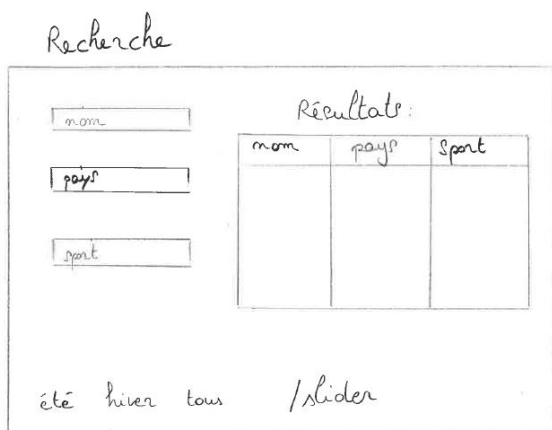 Recherche
nom
pays
sport
Résultats :
nom pays Sport
été hiver tous /slider